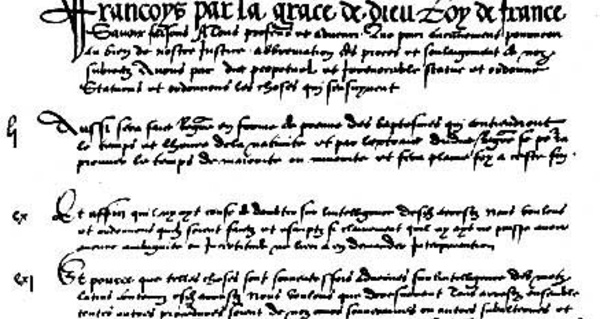 Francoys par la grace de dieu Roy de france
Scavoir faisons A tous presens et advenir Que pour aucunement pourveoir
au bien de nostre Justice abbreviation des proces et soulagement de noz
subiectz Avons par edict perpetuel et irrevocable statue et ordonne
Statuons et ordonnons les choses qui sensuyvent
li Aussi sera faict Regre en forme de preuve des baptesmes qui contiendront
le temps et lheure de la nativite et par lextraict dudict Regre se pourra
prouver le temps de maiorite ou minorite et fera plaine foy a ceste fin
cx Et affin quil ny ayt cause de doubter sur lintelligence desdz arrestz Nous voulons
et ordonnons quilz soient faictz et escriptz si clairement quil ny ayt ne puisse avoir
aucune ambiguite ou incertitude ne lieu a en demander Interpretation
cxi Et pource que telles choses sont souventesfois advenues sur lintelligence des motz
latins contenuz esdz arrestz Nous voulons que doresnavant Tous arrestz ensemble
toutes autres procedures soient de noz cours souveraines ou autres subalternes et